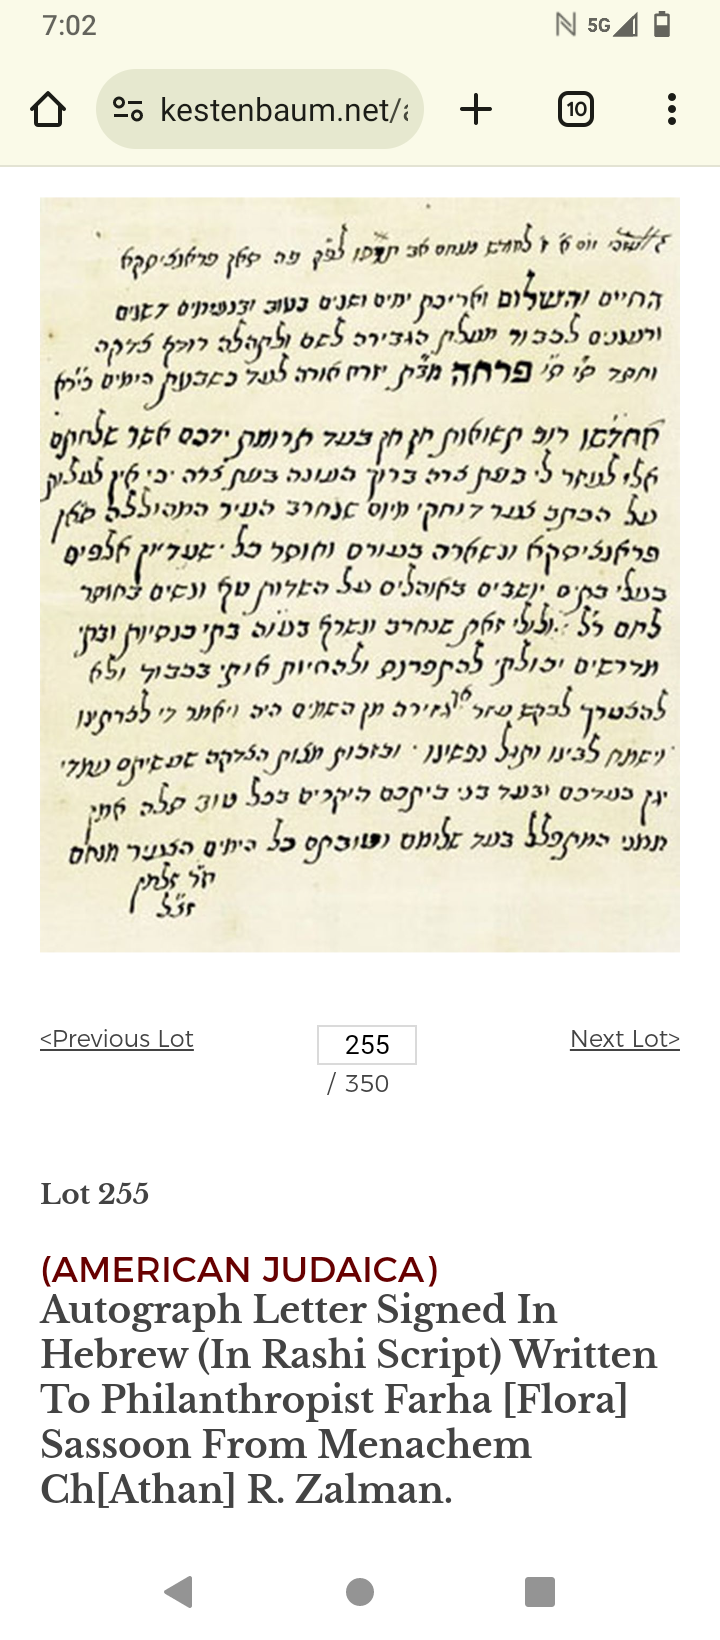 7:02
5G
kestenbaum.net/
10
יום א' ז' לחודש מנחם אב לפ"ק פה סאן פראנציסקא
החיים והשלום ואריכת ימים ושנים בטוב ובנעימים דשנים
ורעננים לכבוד מעלת הגבירה לשם ולתהלה רודף צדקה
וחסד פרחה מצ"ת יזרח אורה לעד כשבעת הימים כי"רא
רוב תשואות חן חן בעד תרומת ידכם אשר שלחתם
אלי לעזר לי בעת צרה ברוך העונה בעת צרה כי אין להעלות
על הכתב צער דוחקי מיום שנחרב העיר המהוללה סאן
פראנציסקא ונשארה בעורם וחוסר כל שעדיין אלפים
בעלי בתים יושבים באוהלים על השדות טף ונשים בחוסר
לחם ר"ל ולולי זאת שנחרב ונשרף בעו"ה בתי כנסיות ובתי
מדרשים יכולתי להתפרנס ולהחיות אותי בכבוד ולא
להצטרך לבקש עזר אך גזירה מן השמים היה ויאמר די לצרתינו
וישמח לבינו ותגל נפשינו ובזכות מצות הצדקה שעשיתם עמדי
יגן בעדכם ובעד בני ביתכם היקרים בכל טוב סלה אמן
ממני המתפלל בעד שלומם וטובתם כל הימים הצעיר מנחם
חו"ר זלמן
זצ"ל
<Previous Lot
255
Next Lot>
/ 350
Lot 255
(AMERICAN JUDAICA)
Autograph Letter Signed In
Hebrew (In Rashi Script) Written
To Philanthropist Farha [Flora]
Sassoon From Menachem
Ch[Athan] R. Zalman.